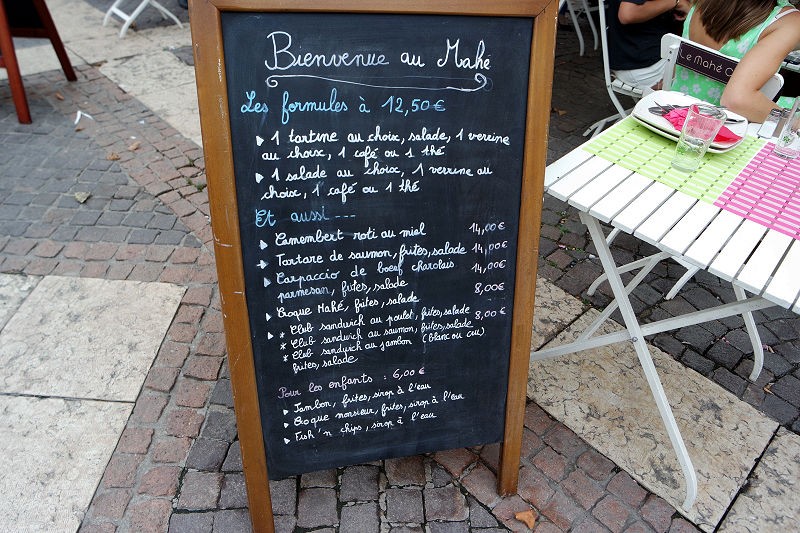 Bienvenue au Mahé
Les formules à 12,50€
1 tartine au choix, salade, 1 verrine
au choix, 1 café ou 1 thé
1 salade au choix, 1 verrine au
choix, 1 café ou 1 thé
Et aussi ---
Camembert roti au miel 14,00€
Tartare de saumon, frites, salade 14,00€
Carpaccio de boeuf charolais 14,00€
parmesan, frites, salade
Croque Mahé, frites, salade 8,00€
* Club sandwich au poulet, frites, salade 8,00€
* Club sandwich au saumon, frites, salade
* Club sandwich au jambon (blanc ou cru)
frites, salade
Pour les enfants : 6,00€
Jambon, frites, sirop à l'eau
Croque monsieur, frites, sirop à l'eau
Fish'n chips, sirop à l'eau
Le Mahé